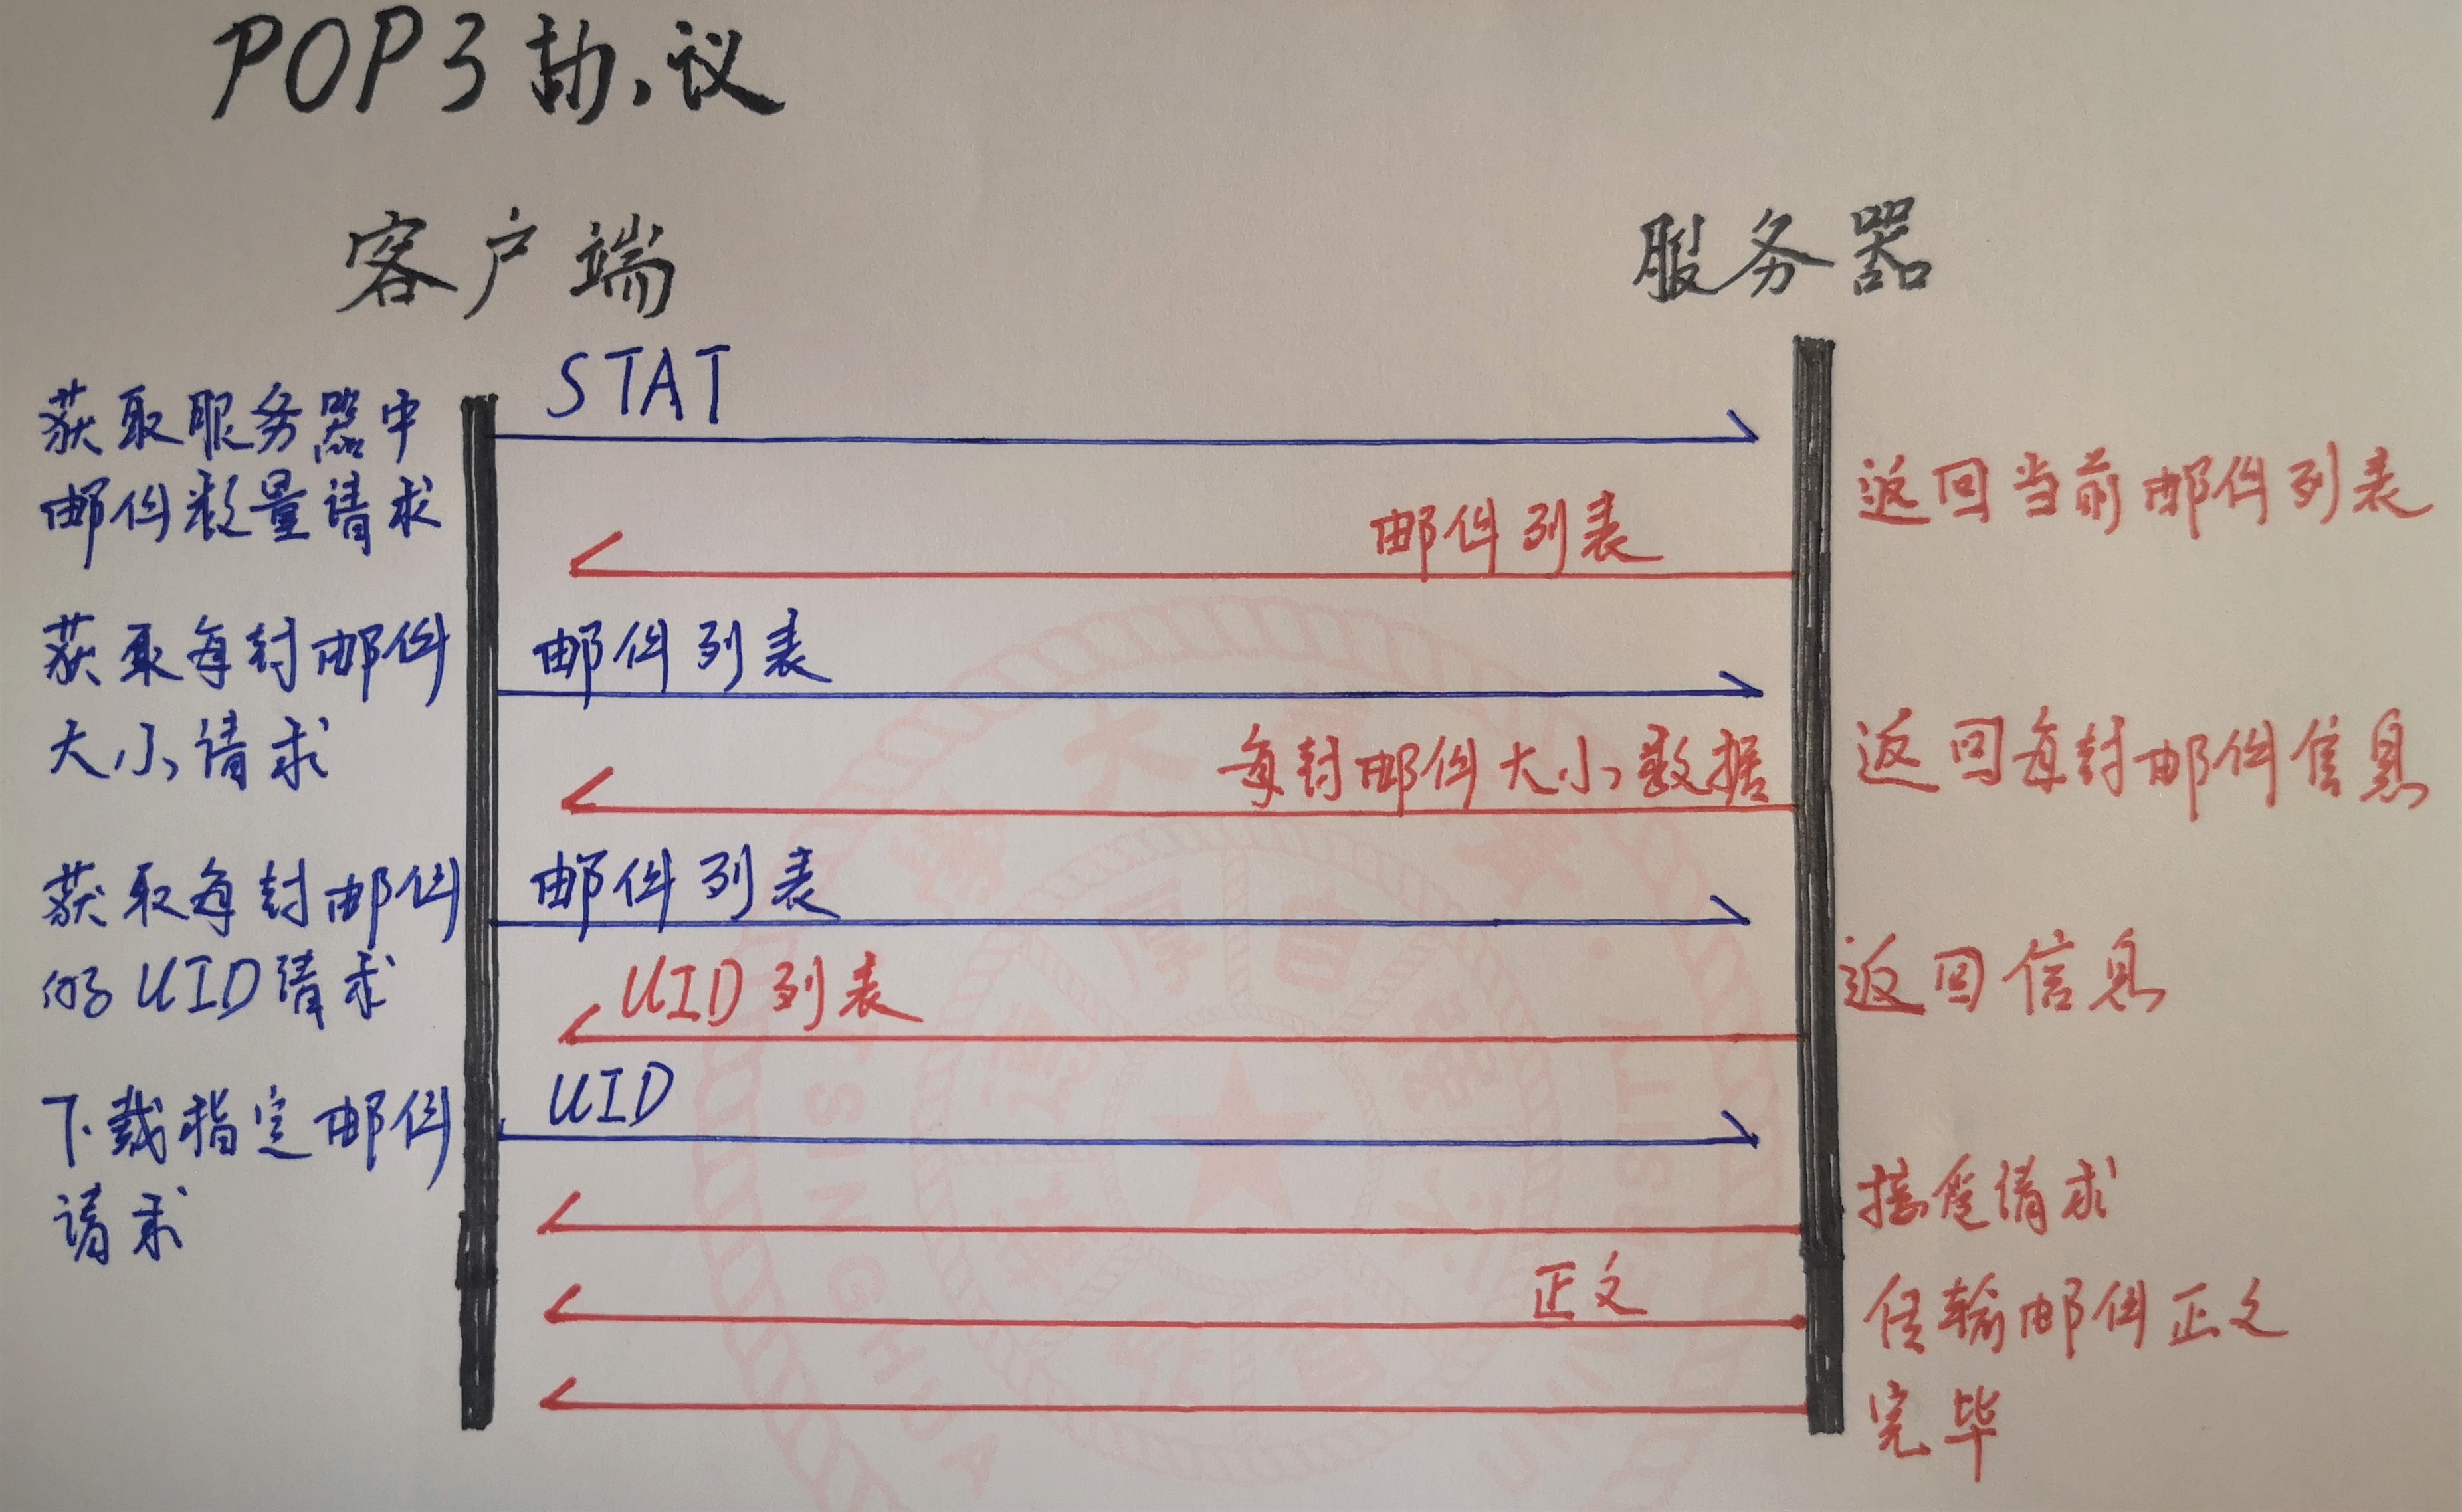 POP3协议
客户端
服务器
STAT
获取服务器中
邮件数量请求
返回当前邮件列表
邮件列表
获取每封邮件
大小请求
邮件列表
每封邮件大小数据
返回每封邮件信息
获取每封邮件
的UID请求
邮件列表
UID列表
返回信息
下载指定邮件
请求
UID
接受请求
正文
传输邮件正文
完毕